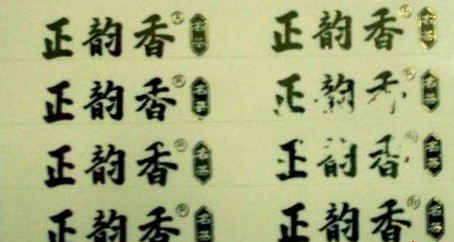 正韵香® 名茶 正韵香® 名茶
正韵香® 名茶 正韵香 名茶
正韵香® 名茶 正韵香 名茶
正韵香® 名茶 正韵香® 名茶